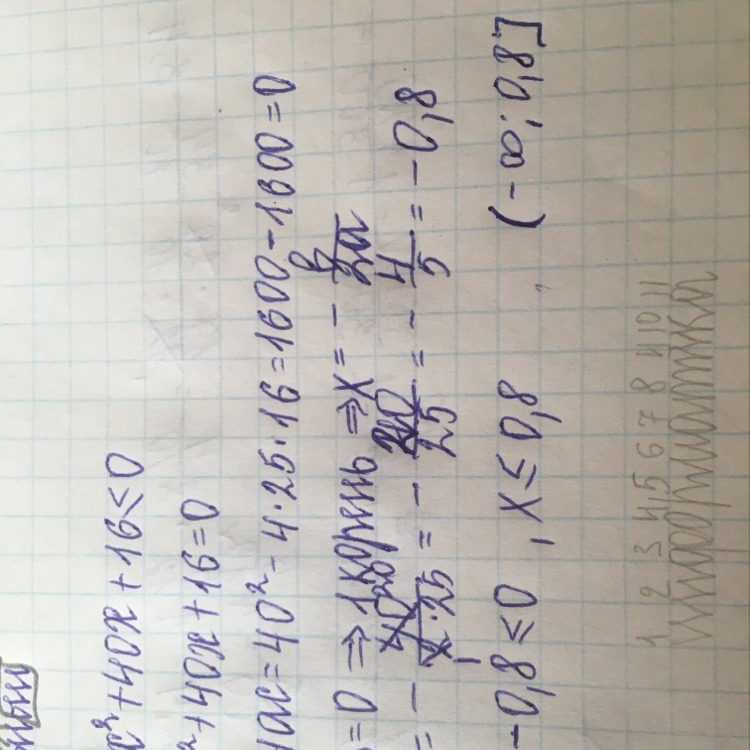 x²+40x+16≤0
²+40x+16=0
4ac=40²-4·25·16=1600-1600=0
=0 ⇒ 1 корень ⇒ x = - в/2a
= - 40/2·25 = - 20/25 = - 4/5 = -0,8
-0,8≤0 , x≤0,8 (-∞; 0,8]
1 2 3 4 5 6 7 8 4 10 11